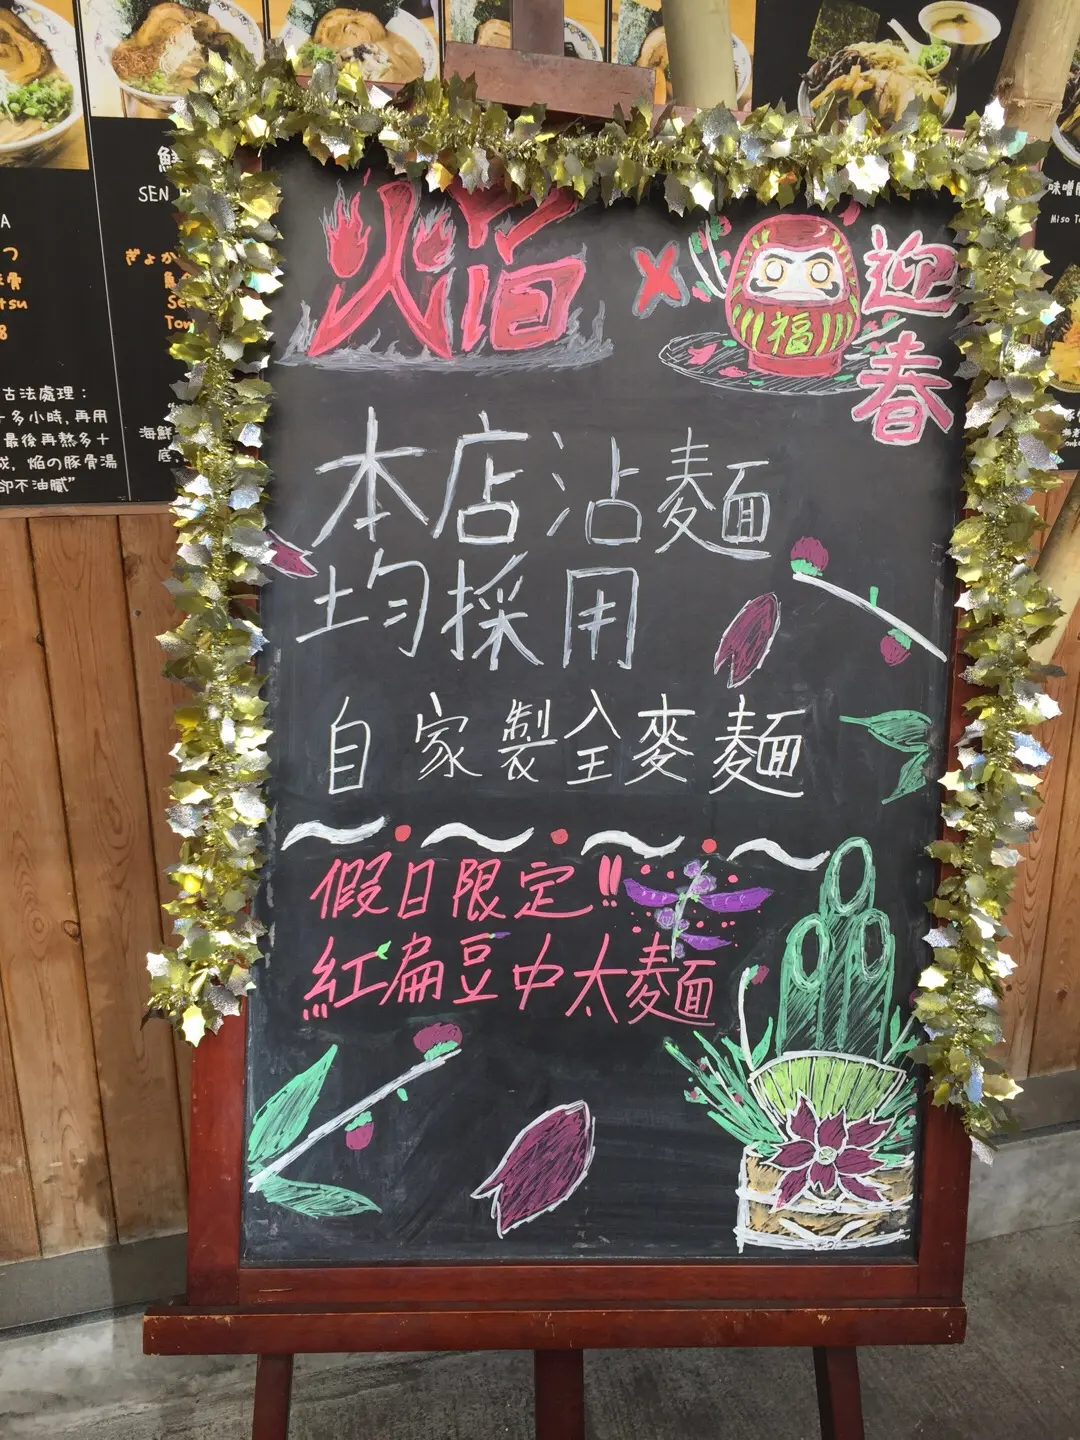 焰 x 福 迎春
本店沾麵
均採用
自家製全麥麵
假日限定!!
紅扁豆中太麵
SEN
A
つ
ぎょか
8
古法處理：
十多小時,再用
最後再熬多十
成，焰の豚骨湯
卻不油膩”
海鮮
底,
味噌
Miso To